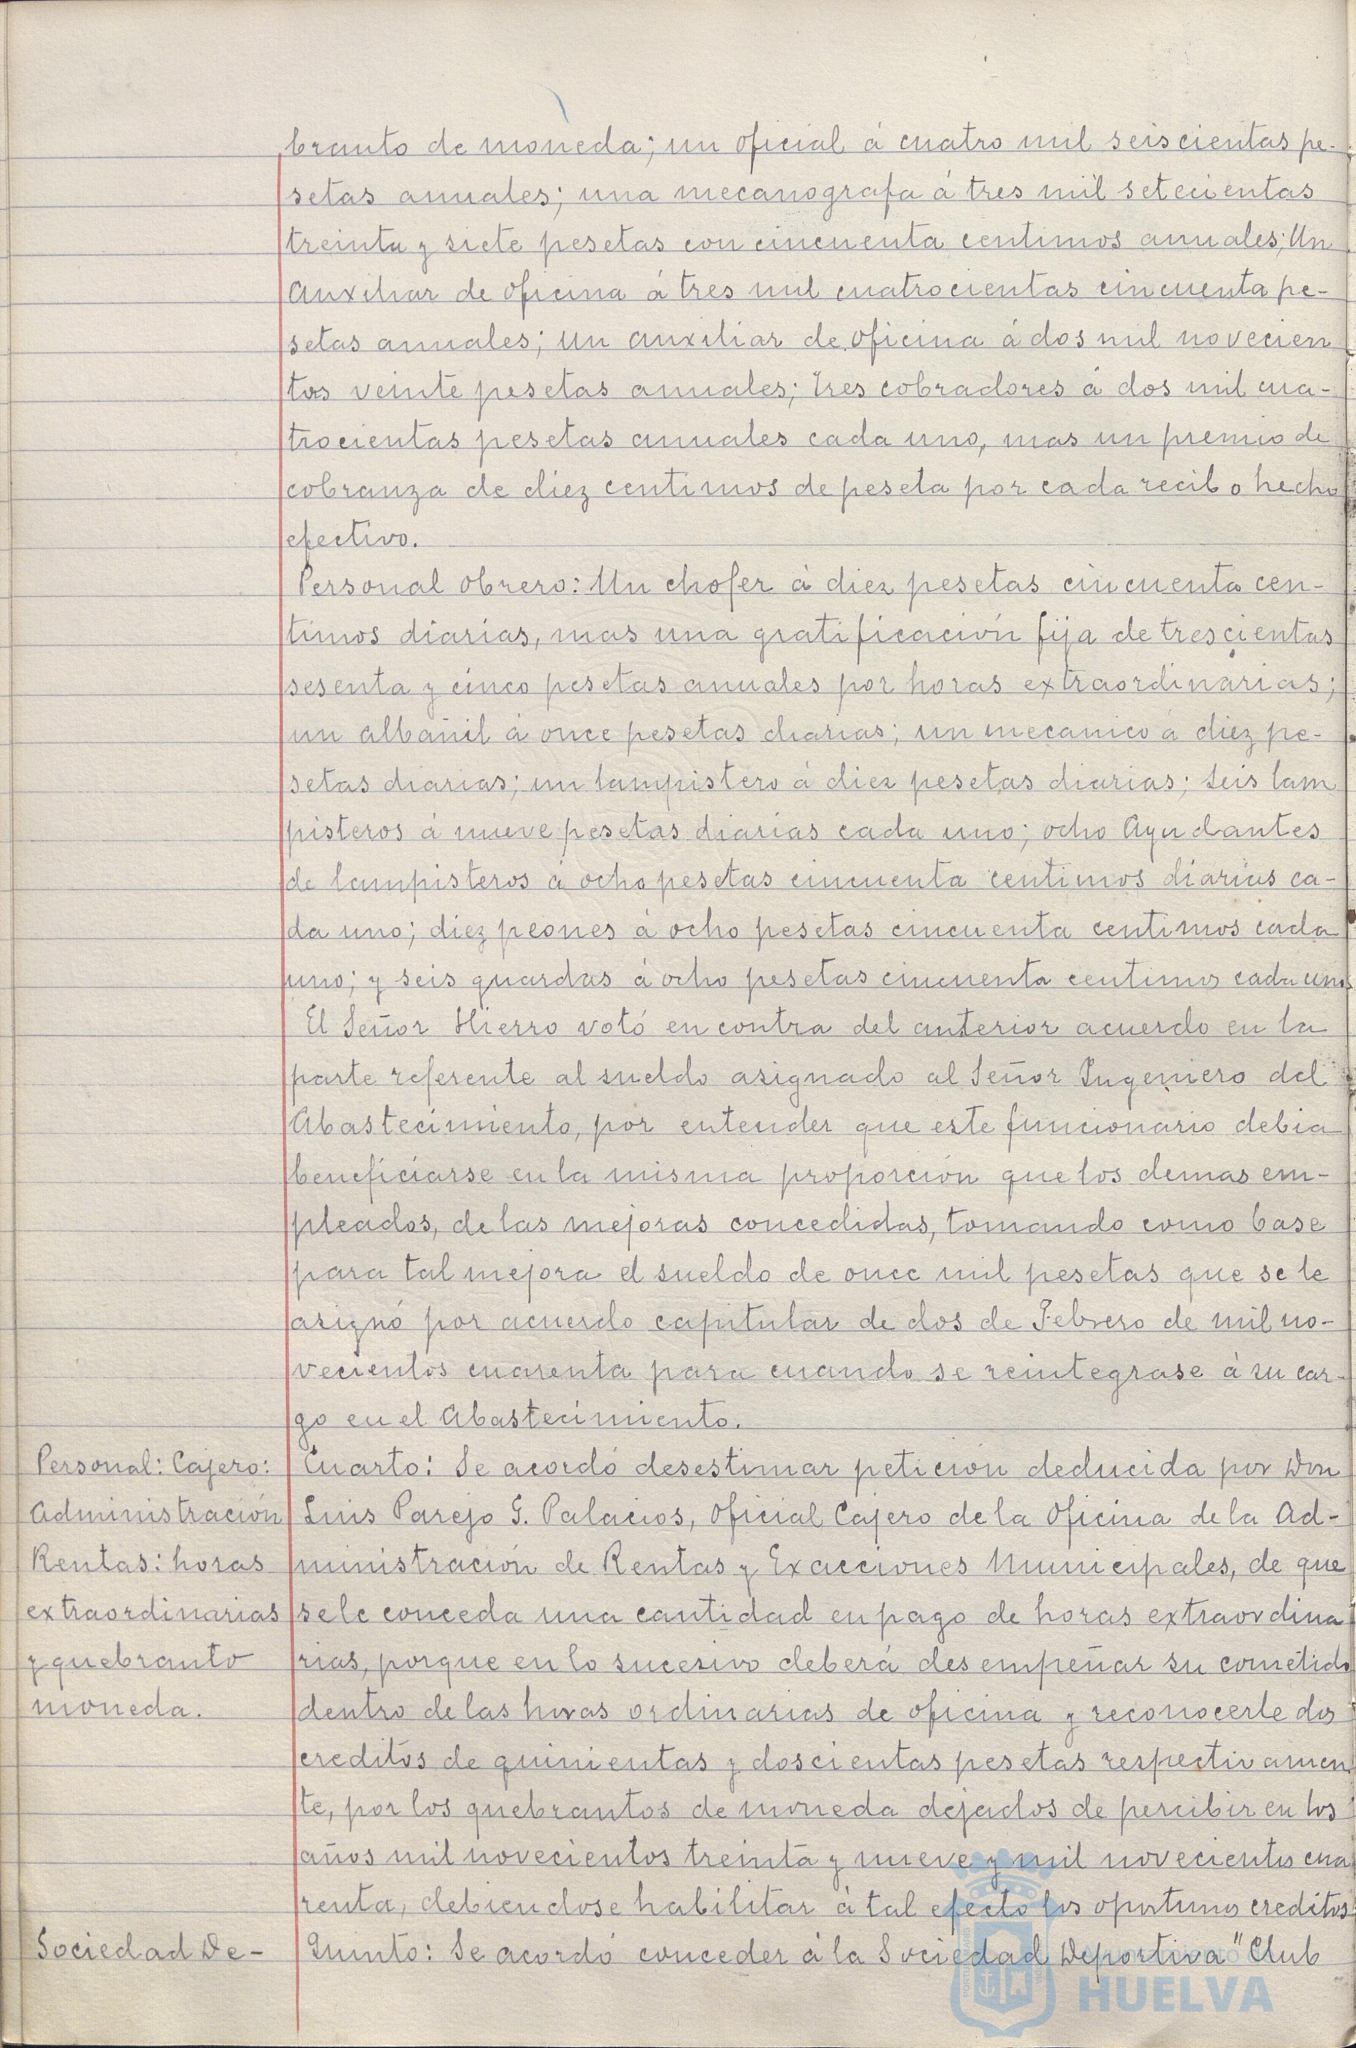 branto de moneda; un oficial á cuatro mil seiscientas pe-
setas anuales; una mecanografa á tres mil setecientas
treinta y siete pesetas con cincuenta centimos anuales; Un
Auxiliar de oficina á tres mil cuatrocientas cincuenta pe-
setas anuales; un auxiliar de oficina á dos mil novecien
tas veinte pesetas anuales; tres cobradores á dos mil cua-
trocientas pesetas anuales cada uno, mas un premio de
cobranza de diez centimos de peseta por cada recibo hecho
efectivo.
Personal obrero: Un chofer á diez pesetas cincuenta cen-
timos diarias, mas una gratificación fija de trescientas
sesenta y cinco pesetas anuales por horas extraordinarias;
un albañil á once pesetas diarias; un mecanico á diez pe-
setas diarias; un lampistero á diez pesetas diarias; seis lam
pisteros á nueve pesetas diarias cada uno; ocho Ayudantes
de lampisteros á ocho pesetas cincuenta centimos diarias ca-
da uno; diez peones á ocho pesetas cincuenta centimos cada
uno; y seis guardas á ocho pesetas cincuenta centimos cada uno
El Señor Hierro votó en contra del anterior acuerdo en la
parte referente al sueldo asignado al Señor Ingeniero del
Abastecimiento, por entender que este funcionario debia
beneficiarse en la misma proporción que los demas em-
pleados, de las mejoras concedidas, tomando como base
para tal mejora el sueldo de once mil pesetas que se le
asignó por acuerdo capitular de dos de Febrero de mil no-
vecientos cuarenta para cuando se reintegrase á su car-
go en el Abastecimiento.
Personal: Cajero:
Administración
Rentas: horas
extraordinarias
y quebranto
moneda.
Cuarto: Se acordó desestimar petición deducida por Don
Luis Parejo G. Palacios, Oficial Cajero de la Oficina de la Ad-
ministración de Rentas y Exacciones Municipales, de que
se le conceda una cantidad en pago de horas extraordina
rias, porque en lo sucesivo deberá desempeñar su cometido
dentro de las horas ordinarias de oficina y reconocerle dos
creditos de quinientas y doscientas pesetas respectivamen
te, por los quebrantos de moneda dejados de percibir en los
años mil novecientos treinta y nueve y mil novecientos cua
renta, debiendose habilitar á tal efecto los oportunos creditos
Sociedad De-
Quinto: Se acordó conceder á la Sociedad Deportiva "Club
HUELVA